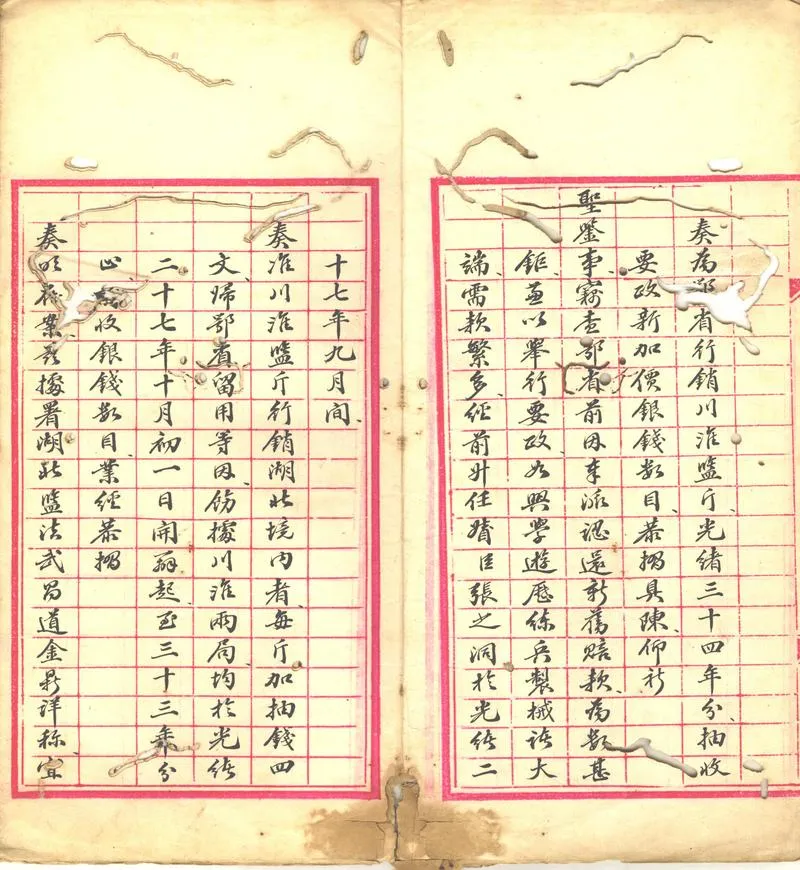 奏為鄂省行銷川淮鹽斤光緒三十四年分抽收
要政新加價銀錢數目恭摺具陳仰祈
聖鑒事竊查鄂省前因奉派認還新舊賠款為數甚
鉅並以舉行要政如興學遊歷練兵製械諸大
端需款繁多經前升任督臣張之洞於光緒二
十七年九月間
奏准川淮鹽斤行銷湖北境內者每斤加抽錢四
文歸鄂省留用等因飭據川淮兩局均於光緒
二十七年十月初一日開辦起至三十三年分
止收銀錢數目業經恭摺
奏明在案茲據署湖北鹽法武昌道金鼎詳稱宜